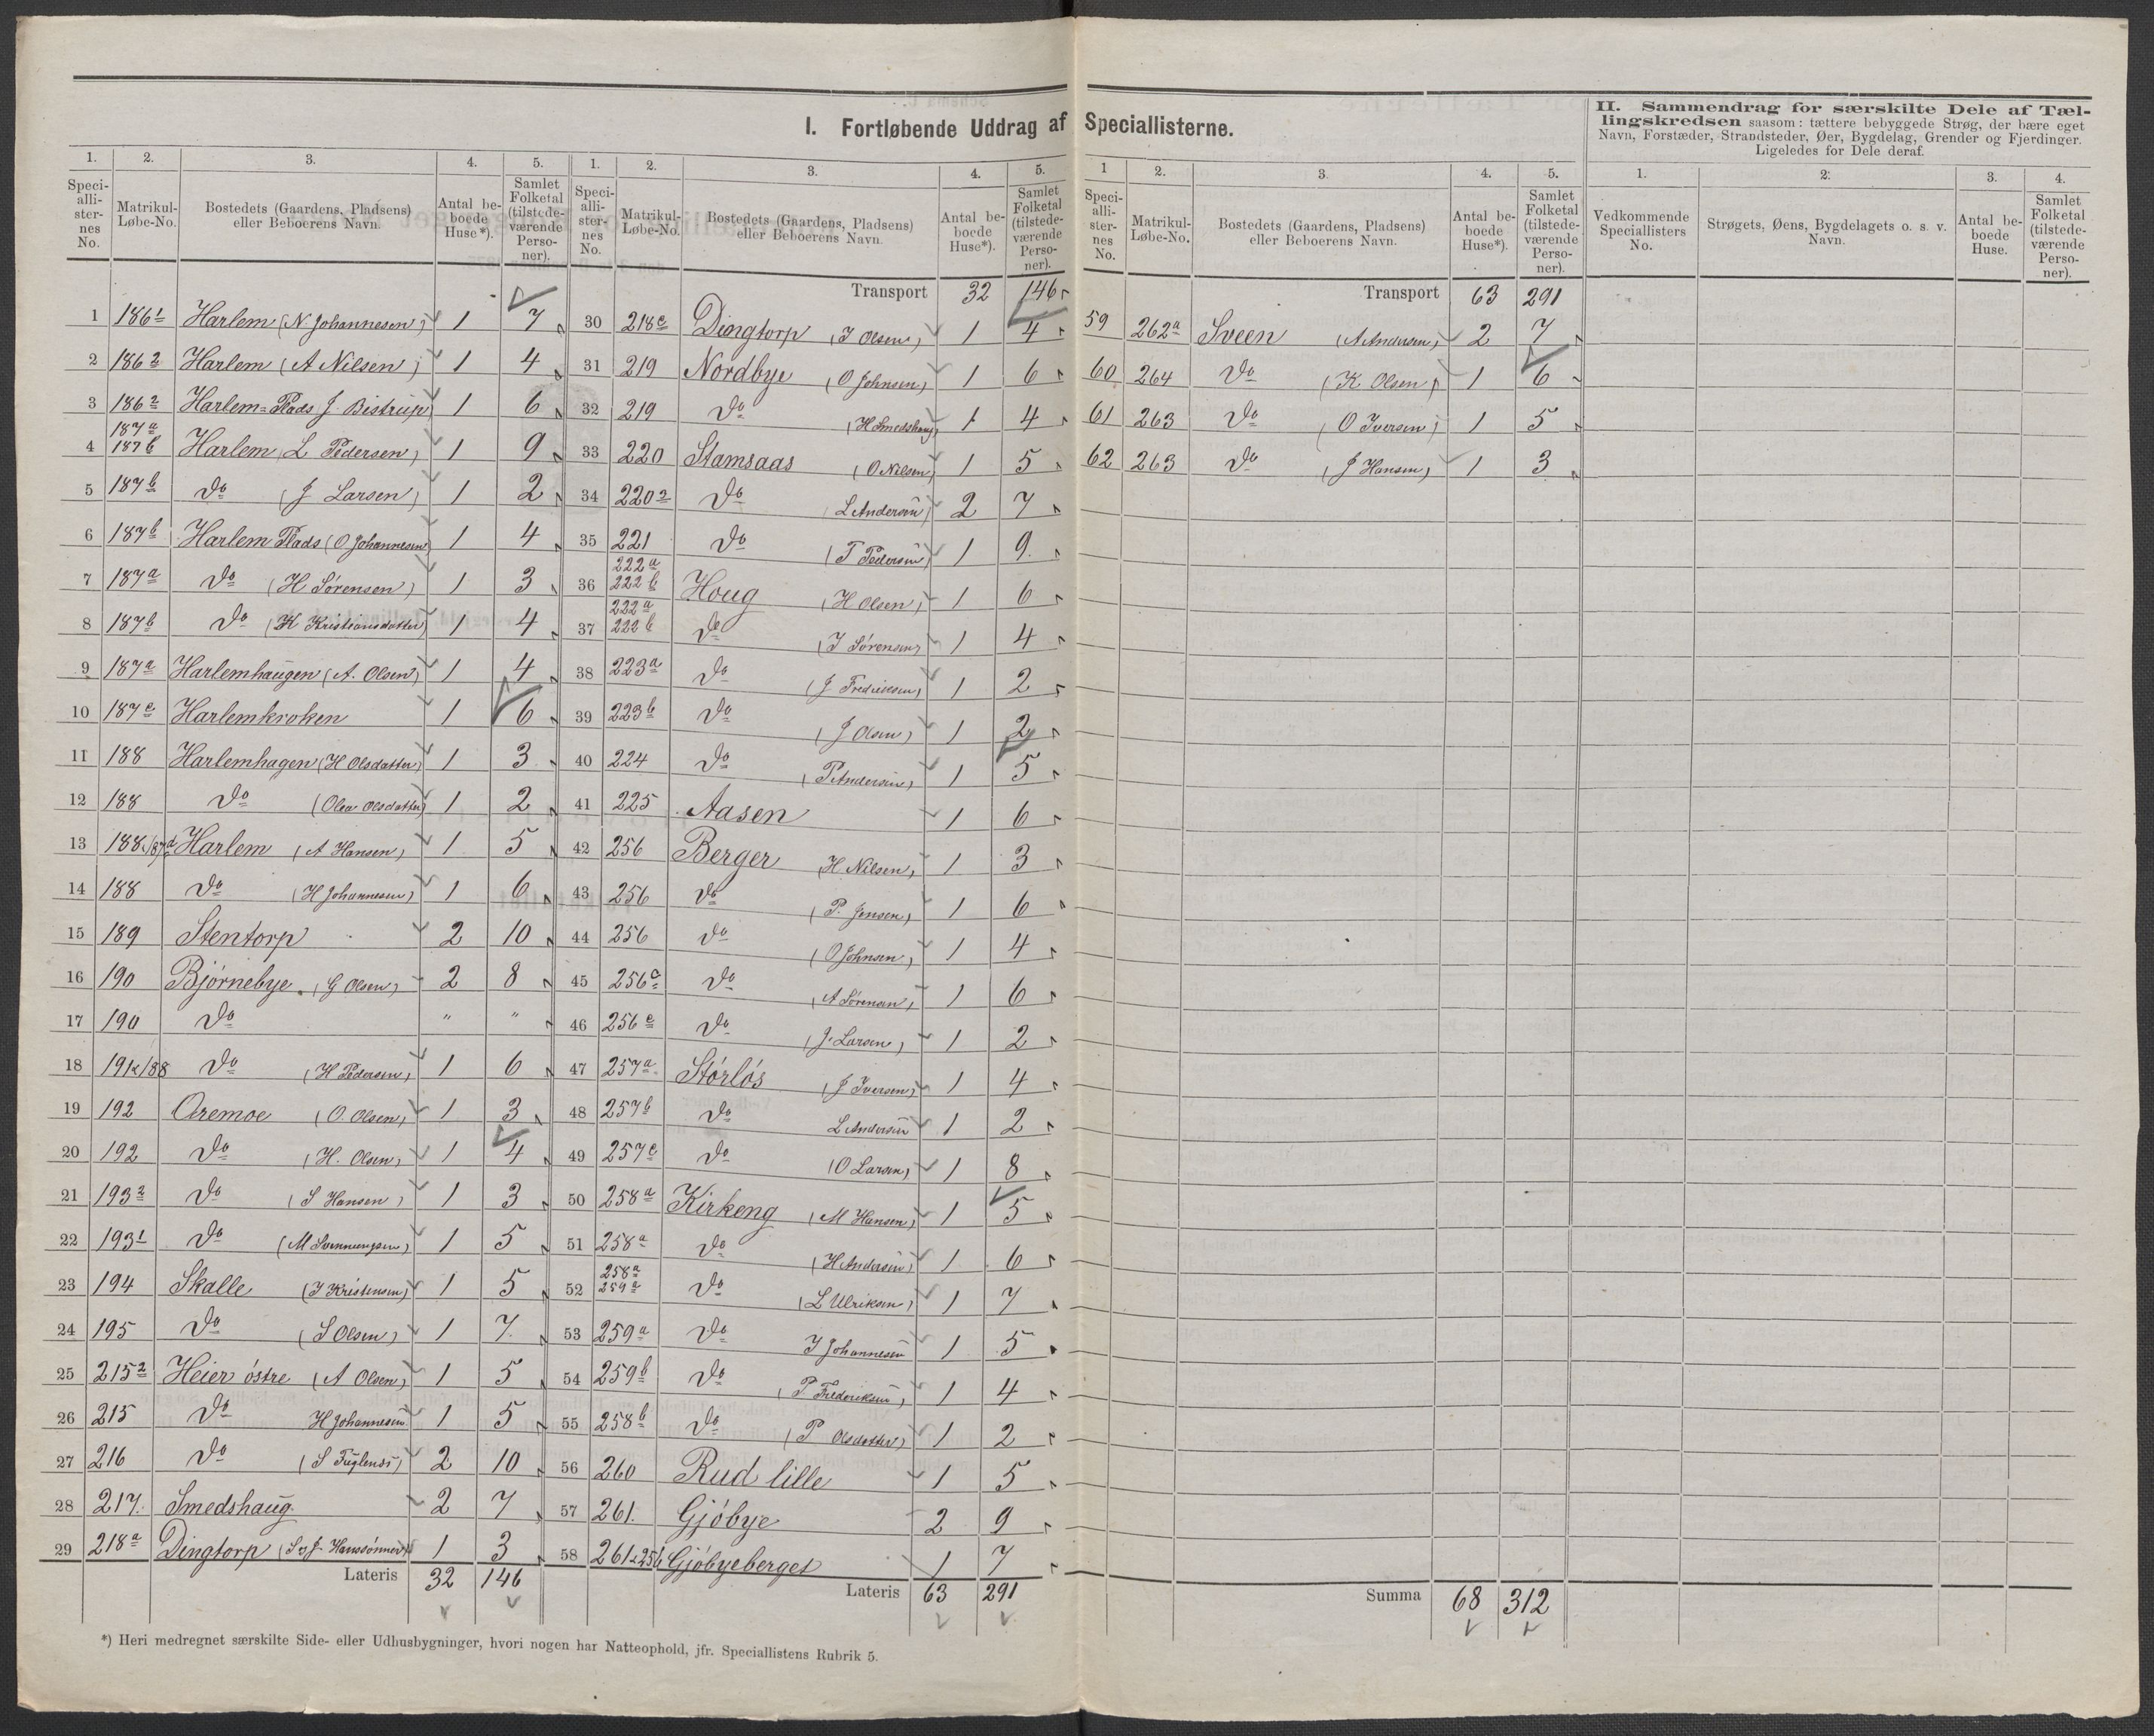 I. Fortløbende Uddrag af Speciallisterne.
II. Sammendrag for særskilte Dele af Tællingskredsen saasom: tættere bebyggede Strøg, der bære eget Navn, Forstæder, Strandsteder, Øer, Bygdelag, Grender og Fjerdinger. Ligeledes for Dele deraf.
1. 2. 3. 4. 5.
Speciallisternes No. Matrikul-Løbe-No. Bostedets (Gaardens, Pladsens) eller Beboerens Navn. Antal beboede Huse*). Samlet Folketal (tilstedeværende Personer).
1 186 1 Harlem (N Johannesen) 1 7
2 186 2 Harlem (A Nilsen) 1 4
3 186 2 Harlem=Plads J. Bistrup) 1 6
4 187 a 187 b Harlem L Pedersen) 1 9
5 187 b Do (J Larsen) 1 2
6 187 b Harlem Plads (O Johannesen 1 4
7 187 a Do (H Sørensen) 1 3
8 187 b Do (K Kristiansdatter) 1 4
9 187 a Harlemhaugen (A. Olsen) 1 4
10 187 c Harlemkroken 1 6
11 188 Harlemhagen (H Olsdatter) 1 3
12 188 Do (Olea Olsdatter) 1 2
13 188./87 d Harlem (A Hansen) 1 5
14 188 Do (H Johannesen) 1 6
15 189 Stentorp 2 10
16 190 Bjørnebye (G Olsen) 2 8
17 190 Do " "
18 191 x/88 Do (H Pedersen) 1 6
19 192 Oremoe (O. Olsen) 1 3
20 192 Do (H. Olsen) 1 4
21 193 2 Do (S Hansen) 1 3
22 193 1 Do (M Svennungsen) 1 5
23 194 Skalle (J Kristensen) 1 5
24 195 Do (S Olsen) 1 7
25 215 2 Heier østre (A Olsen) 1 5
26 215 Do H Johannesen 1 5
27 216 Do (S Fuglenes) 2 10
28 217. Smedshaug 2 7
29 218 a Dingtorp (S og J Hanssønner) 1 3
Lateris 32 146
1. 2. 3. 4. 5.
Speciallisternes No. Matrikul-Løbe-No. Bostedets (Gaardens, Pladsens) eller Beboerens Navn. Antal beboede Huse*). Samlet Folketal (tilstedeværende Personer).
Transport 32 146
30 218 c Dingtorp (J Olsen) 1 4
31 219 Nordbye (O Johnsen) 1 6
32 219 Do (H Smedshaug) 1 4
33 220 Stamsaas (O Nilsen) 1 5
34 220 2 Do L Andersen) 2 7
35 221 Do (T Pedersen) 1 9
36 222 a 222 b Houg (H Olsen) 1 6
37 222 a 222 b Do (J Sørensen) 1 4
38 223 a Do (J Fredriksen) 1 2
39 223 b Do (J Olsen) 1 2
40 224 Do (P Andersen) 1 5
41 225 Aasen 1 6
42 256 Berger H Nilsen) 1 3
43 256 Do (P. Jensen) 1 6
44 256 Do (O Johnsen) 1 4
45 256 a Do (A Sørensen) 1 6
46 256 c Do (J. Larsen) 1 2
47 257 a Størløs (J Iversen) 1 4
48 257 b Do L Andersen 1 2
49 257 c Do (O Larsen) 1 8
50 258 a Kirkeng (M Hansen) 1 5
51 258 a Do (H Andersen) 1 6
52 258 a 259 a Do (L Ulriksen) 1 7
53 259 a Do J Johannesen 1 5
54 259 b Do (P Frederiksen) 1 4
55 258 b Do (P Olsdatter) 1 2
56 260 Rud lille 1 5
57 261. Gjøbye 2 9
58 261 x 256 Gjøbyeberget 1 7
Lateris 63 291
1 2. 3. 4. 5.
Speciallisternes No. Matrikul-Løbe-No. Bostedets (Gaardens, Pladsens) eller Beboerens Navn. Antal beboede Huse*). Samlet Folketal (tilstedeværende Personer).
Transport 63 291
59 262 a Sveen (A Andersen) 2 7
60 264 Do (K Olsen) 1 6
61 263 Do (O Iversen) 1 5
62 263 Do (J Hansen) 1 3
Summa 68 312
1. 2. 3. 4.
Vedkommende Speciallisters No. Strøgets, Øens, Bygdelagets o. s. v. Navn. Antal beboede Huse. Samlet Folketal (tilstedeværende Personer).
*) Heri medregnet særskilte Side- eller Udhusbygninger, hvori nogen har Natteophold, jfr. Speciallistens Rubrik 5.